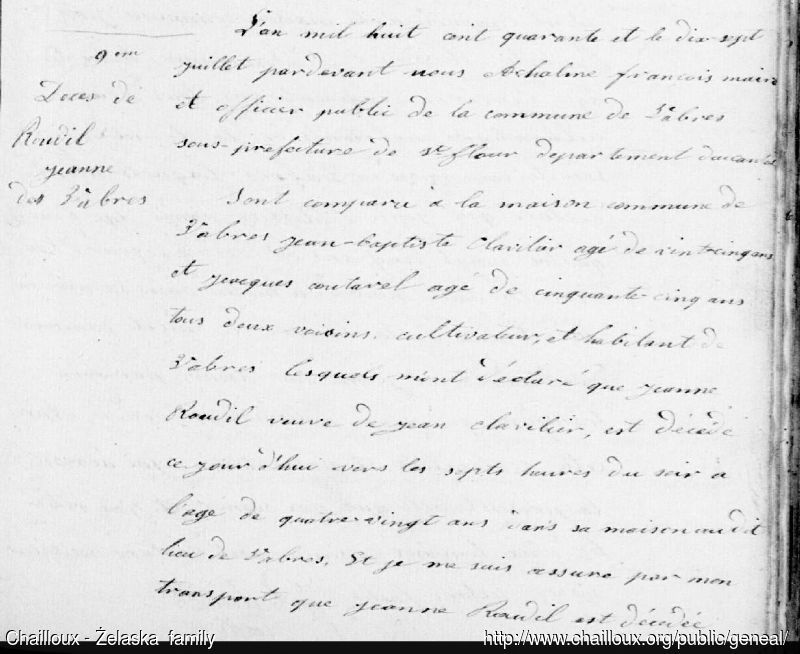 9em
Deces de
Roudil
jeanne
des Trabres
L'an mil huit cent quarante et le dix sept
juillet pardevant nous Achalme françois maire
et officier public de la commune de Trabres
sous-prefecture de st flour departement ducantal
Sont comparu à la maison commune de
Trabres jean-baptiste Clavilier agé de vint-cinq ans
et jacques coutarel agé de cinquante-cinq ans
tous deux voisins, cultivateur, et habitant de
Trabres lesquels m'ont déclaré que jeanne
Roudil veuve de jean clavilier, est décédé
ce jour d'hui vers les septs heures du soir à
l'age de quatre-vingt ans dans sa maison au dit
lieu de Trabres, Et je me suis assuré par mon
transport que jeanne Roudil est décédée
Chailloux - Żelaska family
http://www.chailloux.org/public/geneal/